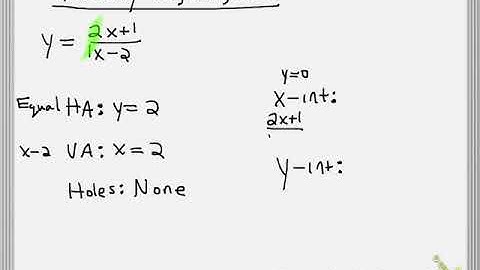 y = 2x+1
1x-2
Equal HA: y = 2
x-2 VA: x = 2
Holes: None
y=0
x-int:
2x+1
y-int: